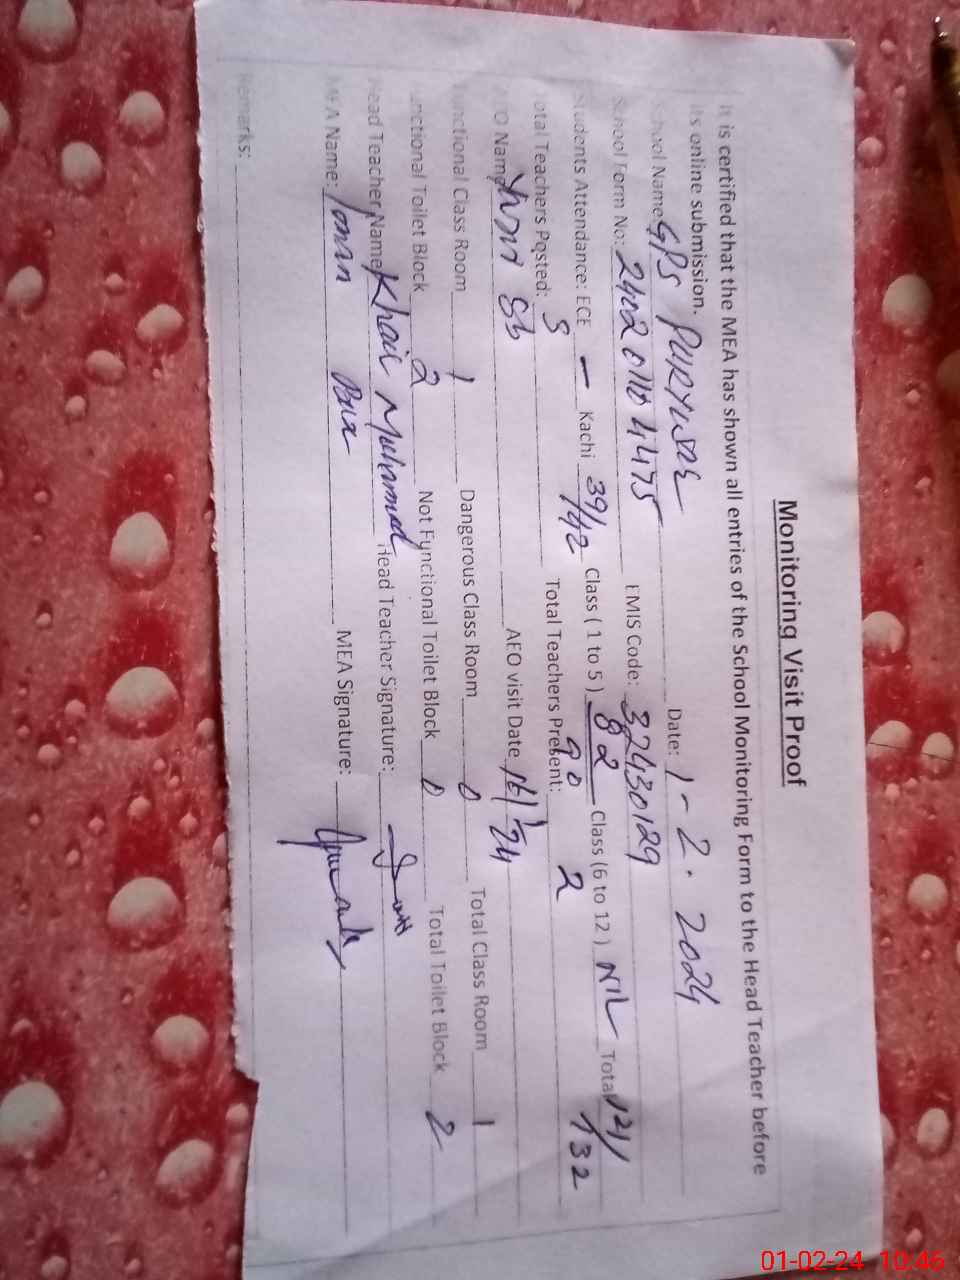 Monitoring Visit Proof
It is certified that the MEA has shown all entries of the School Monitoring Form to the Head Teacher before
its online submission.
School Name: GPS Date: 1-2.2024
School Form No: EMIS Code: 32430129
Students Attendance: ECE — Kachi 39/42 Class ( 1 to 5 ) 82/90 Class (6 to 12 ) NIL Total 121/132
Total Teachers Posted: Total Teachers Present: 2
AEO Name AEO visit Date 16/1/24
Functional Class Room 1 Dangerous Class Room 0 Total Class Room 1
Functional Toilet Block 2 Not Functional Toilet Block 0 Total Toilet Block 2
Head Teacher Name Khair Muhmad Head Teacher Signature:
MEA Name: Bux MEA Signature:
Remarks:
01-02-24 10:46